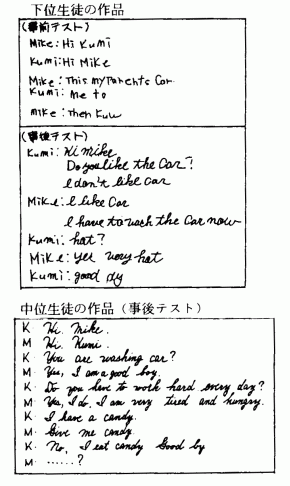 下位生徒の作品
(事前テスト)
Mike: Hi Kumi
Kumi: Hi Mike
Mike: This my Parents Car.
Kumi: me to
mike: Then
(事後テスト)
Kumi: Hi Mike
Do you like the Car?
I don't like car
Mike: I like Car
I have to wach the Car now
Kumi: hat?
Mike: yes very hat
Kumi: good
中位生徒の作品(事後テスト)
K. Hi. Mike.
M Hi. Kumi.
K You are washing car?
M Yes, I am a good boy.
K. Do you have to work hard every day?
M Yes, I do. I am very tired and hungry.
K I have a candy.
M. Give me candy.
K. No, I eat candy Good by
M. ......?